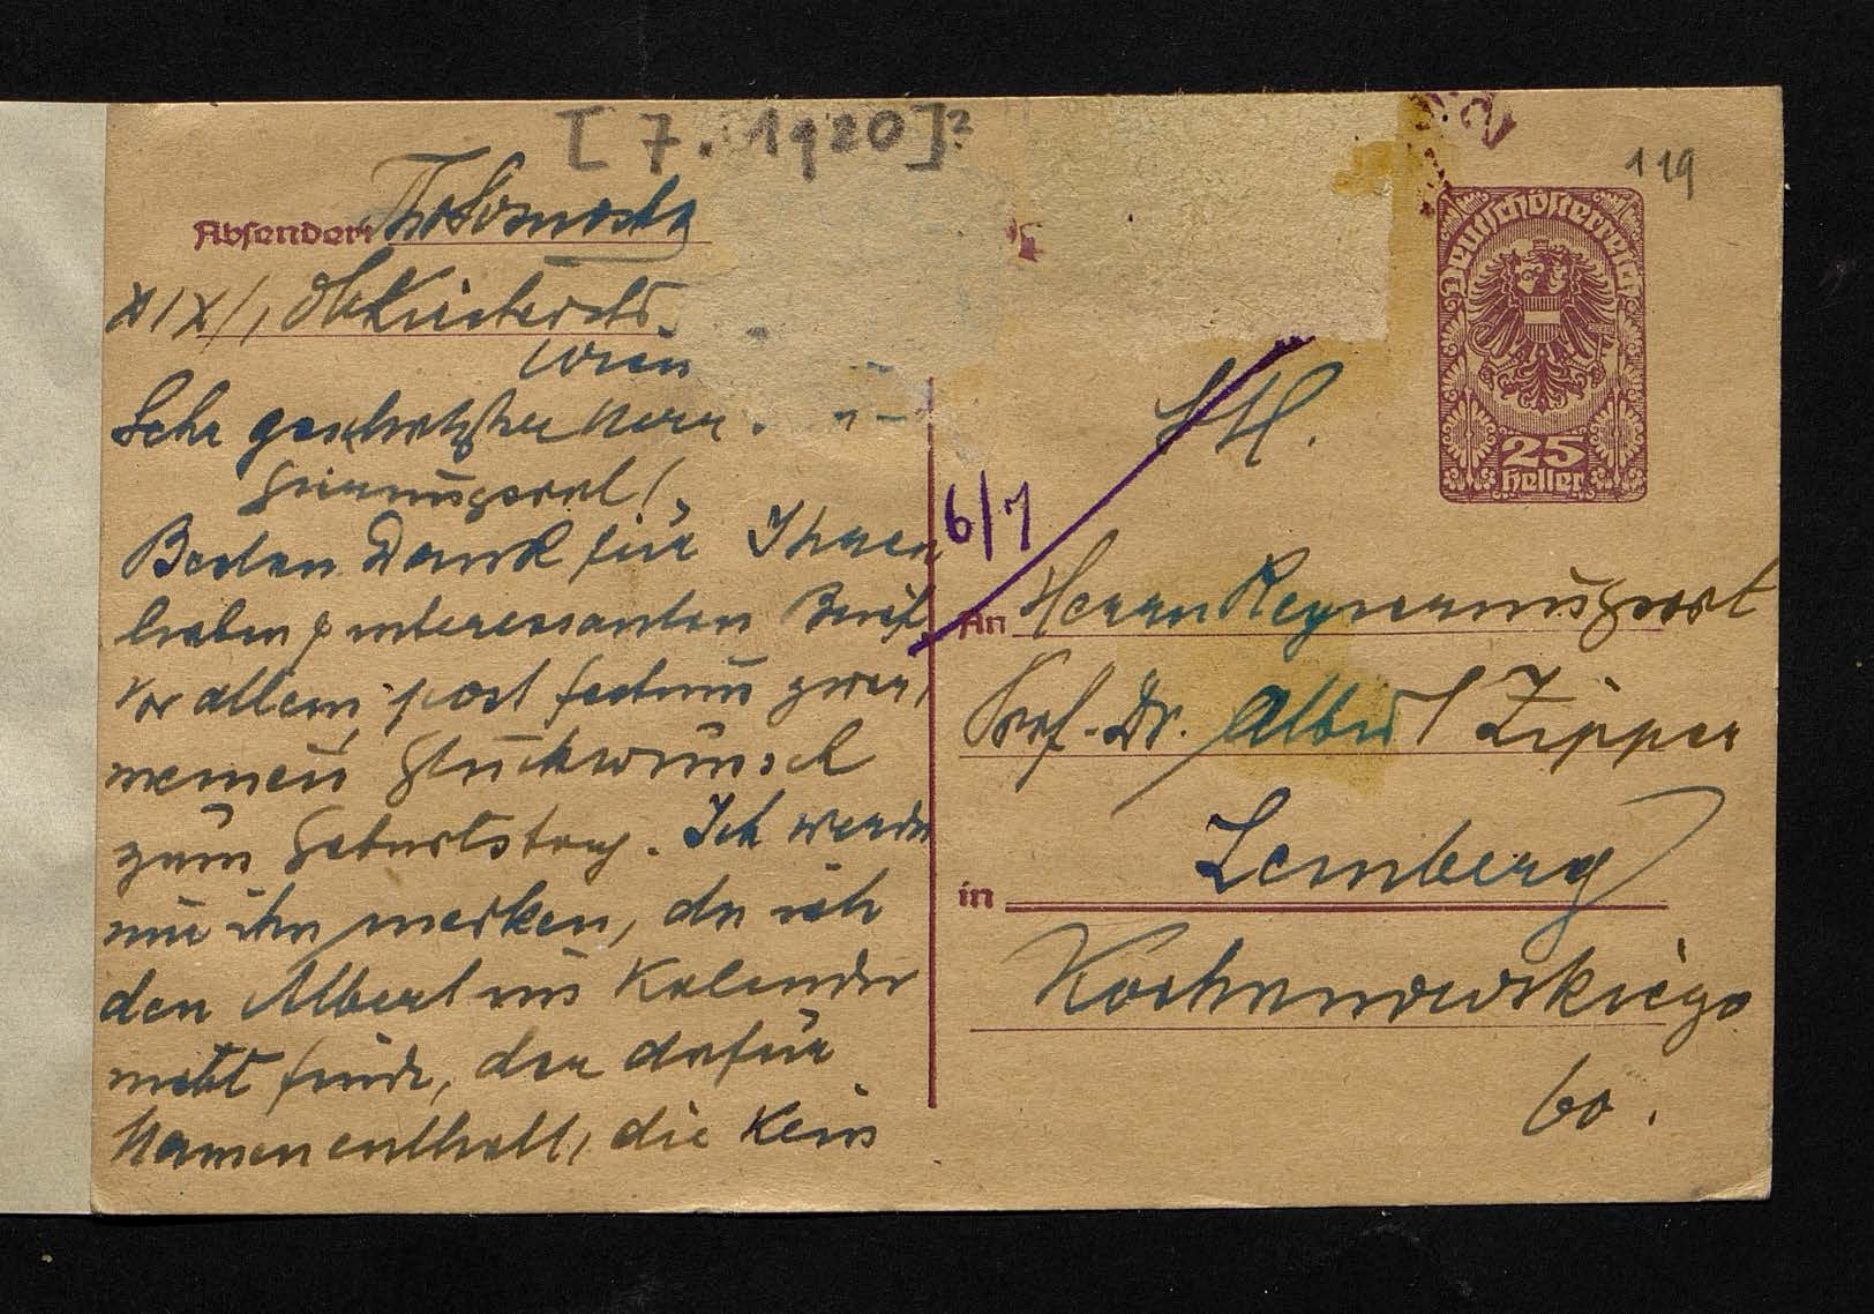 [7. 1920]?
119
Absender:
XIX/1,
Wien
Sehr geschätzter Herr
Gierungsrat!
Besten Dank für Ihren
lieben, interessanten Brief
Vor allem post festum zwar,
meinen Glückwunsch
zum Geburtstag. Ich werde
mir ihn merken, da ich
den Albert im Kalender
nicht finde, der dafür
Namen enthält, die kein
Deutschösterreich
25
Heller
6/7
An Herrn Regierungsrat
Prof. Dr. Albert Zipper
in Lemberg
Kochanowskiego
60.